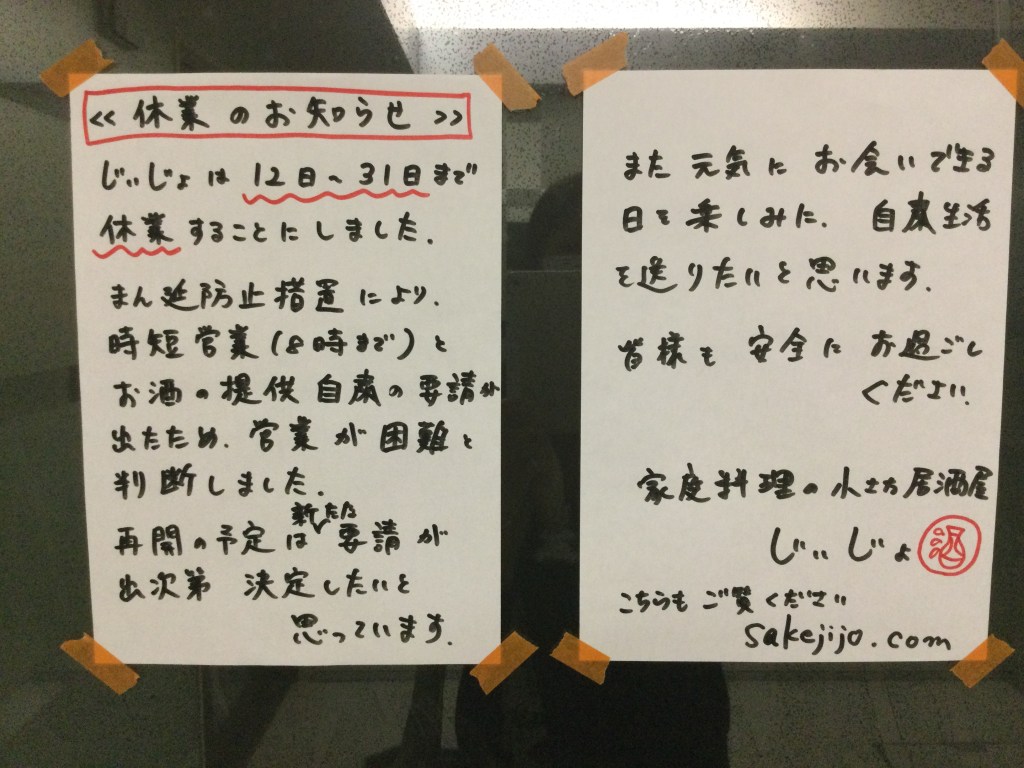 << 休業のお知らせ >>
じぃじょは 12日~31日まで
休業することにしました.
まん延防止措置により.
時短営業(8時まで)と
お酒の提供自粛の要請が
出たため.営業が困難と
判断しました.
再開の予定は新たな要請が
出次第 決定したいと
思っています.
また元気にお会いできる
日を楽しみに. 自粛生活
を送りたいと思います.
皆様も安全にお過ごし
ください.
家庭料理の小さな居酒屋
じぃじょ 酒
こちらもご覧ください
sakejijo.com